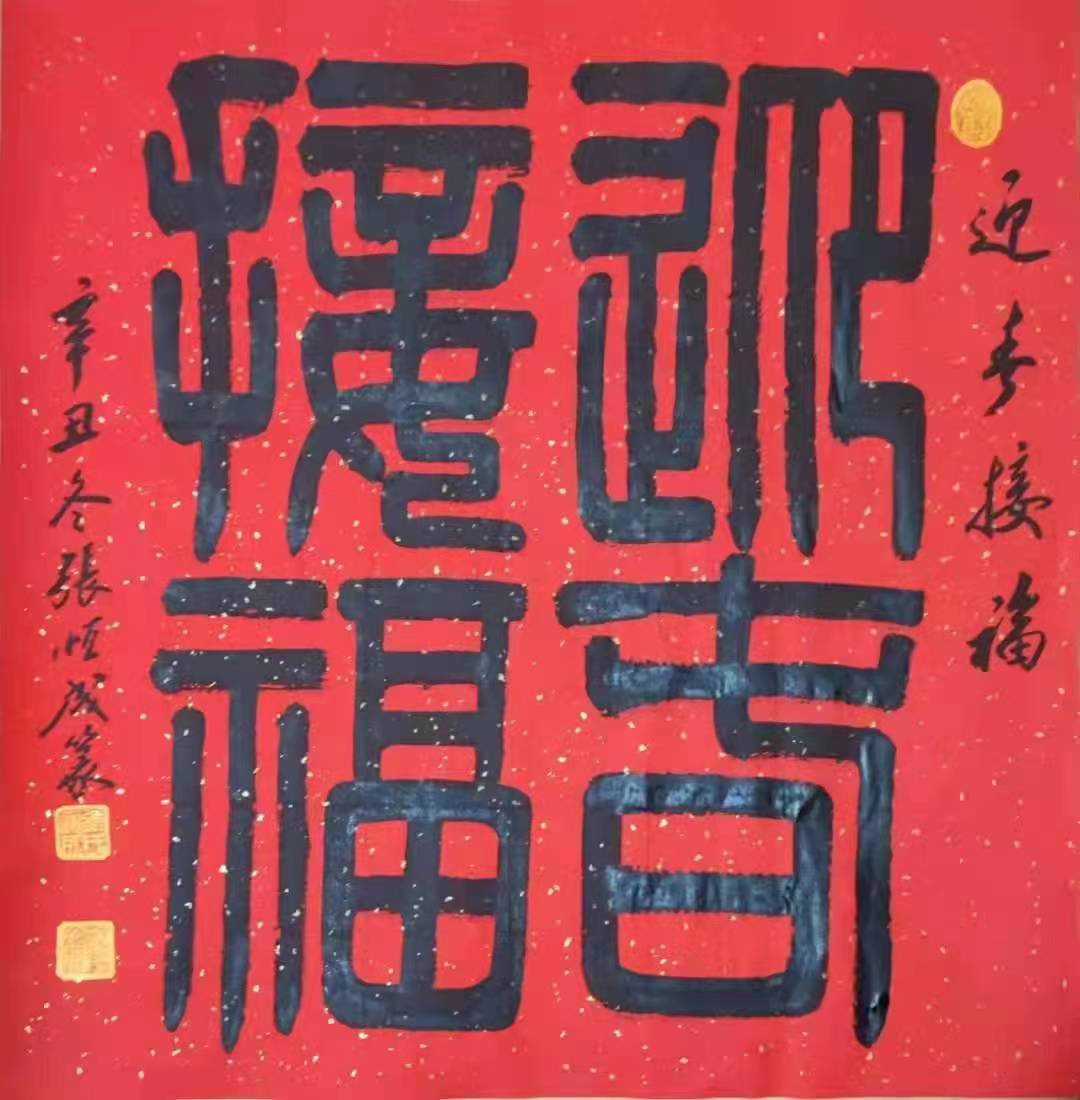 迎春
接福
迎春接福
辛丑冬張恒成篆